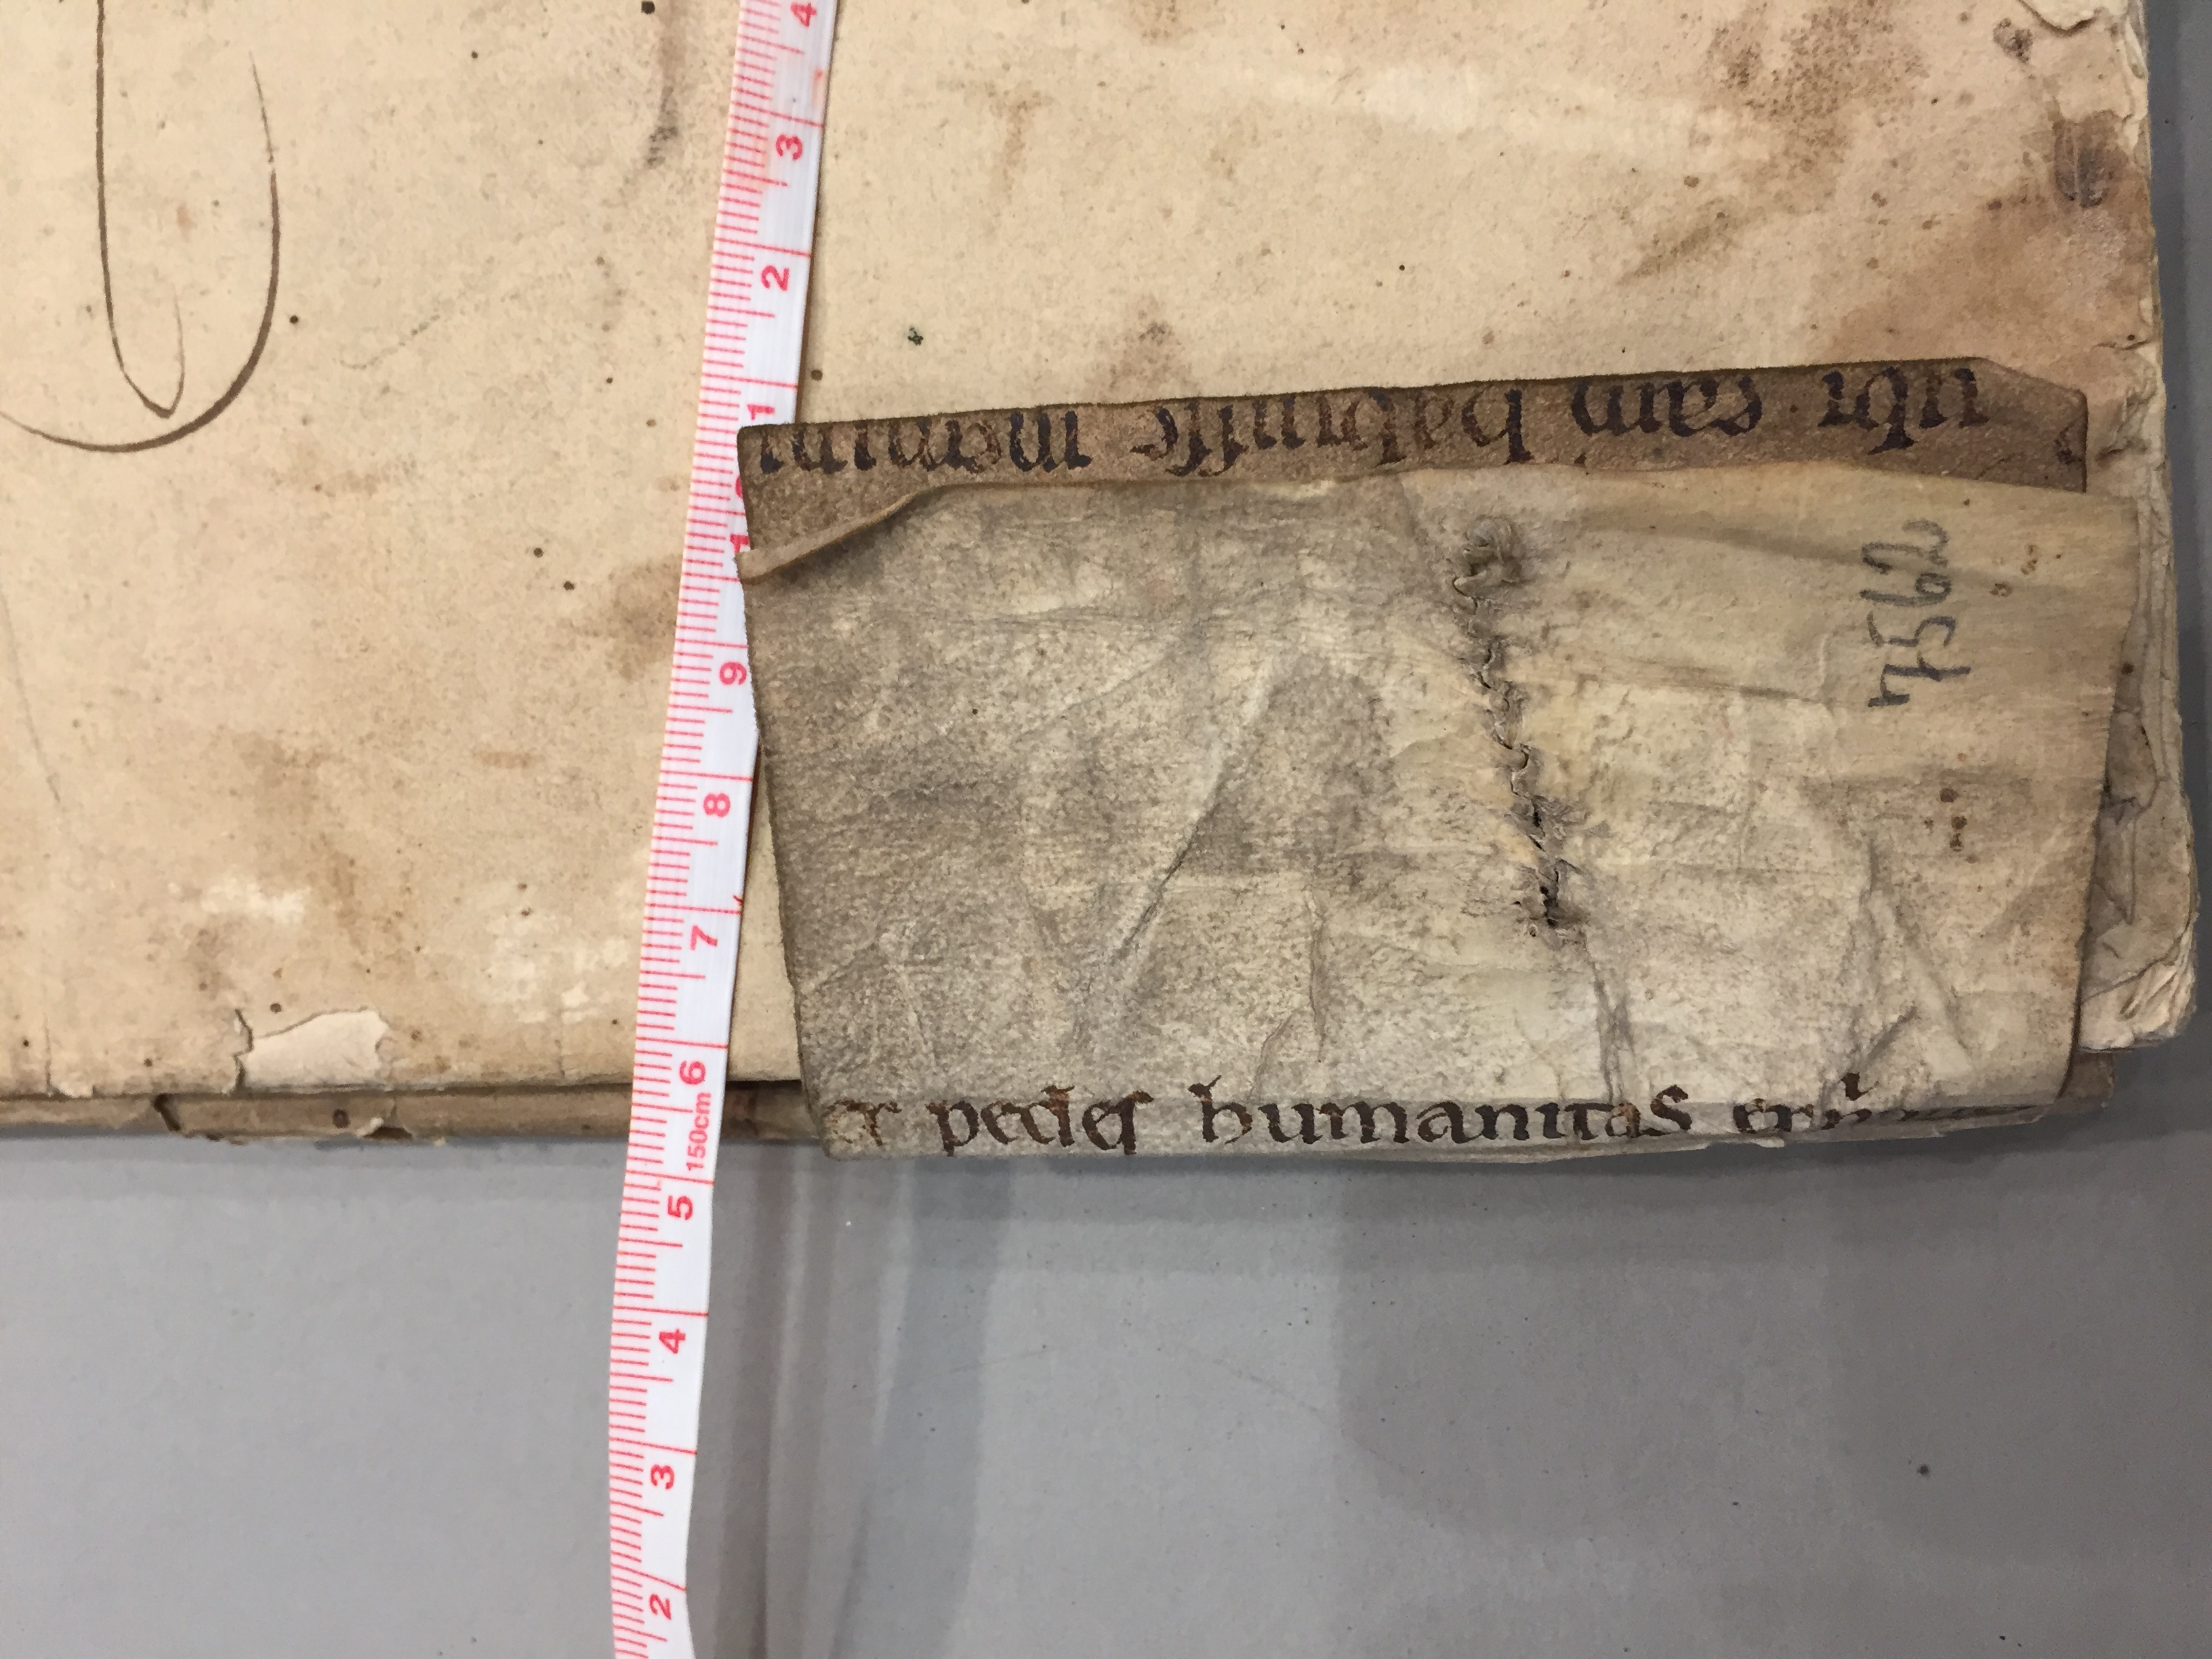 ubi eam habuisse
7562
et pedes humanitas
4
3
2
1
9
8
7
6
150cm
5
4
3
2